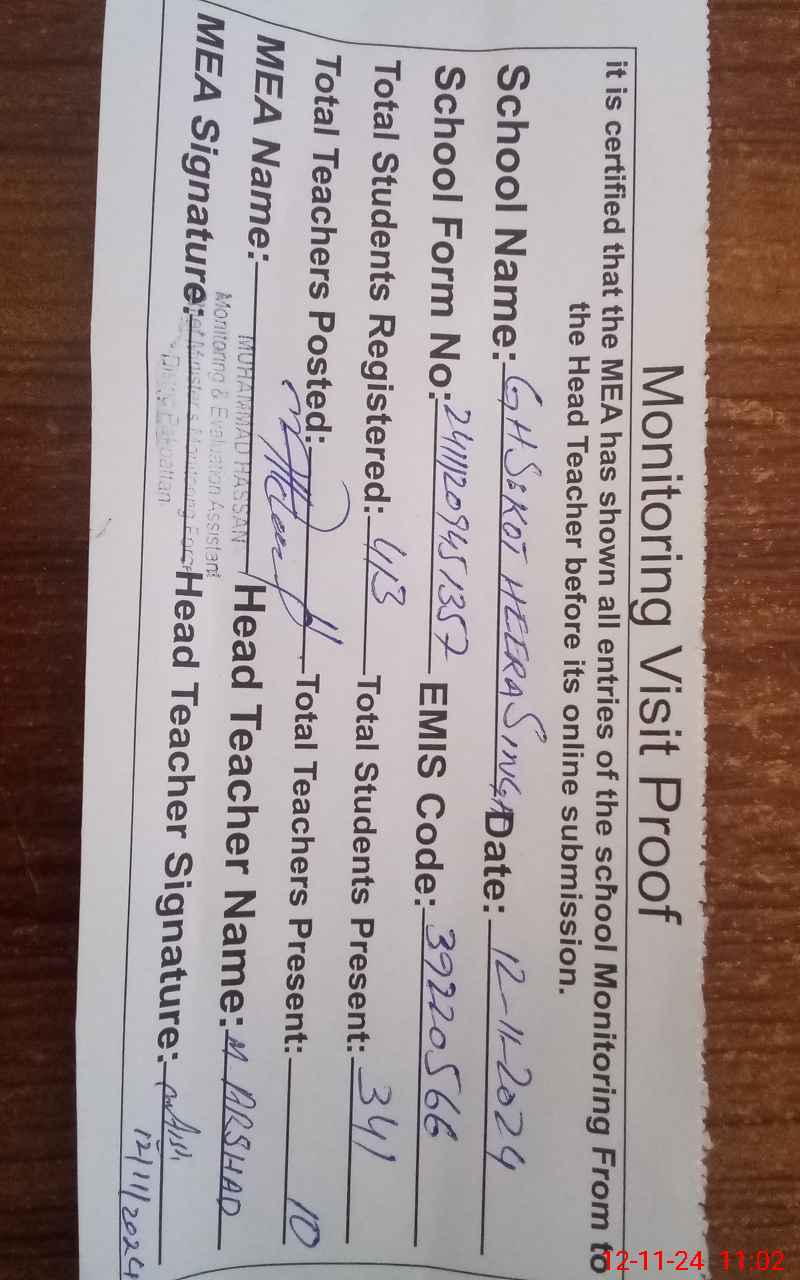 Monitoring Visit Proof
it is certified that the MEA has shown all entries of the school Monitoring From to
the Head Teacher before its online submission.
School Name: GHS KOT HEERA SINGH Date: 12-11-2024
School Form No: 24111209451357 EMIS Code: 39220566
Total Students Registered: 413 Total Students Present: 341
Total Teachers Posted: 11 Total Teachers Present: 10
MEA Name: MUHAMMAD HASSAN Head Teacher Name: M ARSHAD
Monitoring & Evaluation Assistant
MEA Signature: Chief Minister's Monitoring Force Head Teacher Signature:
Distt. Pakpattan
12/11/2024
12-11-24 11:02